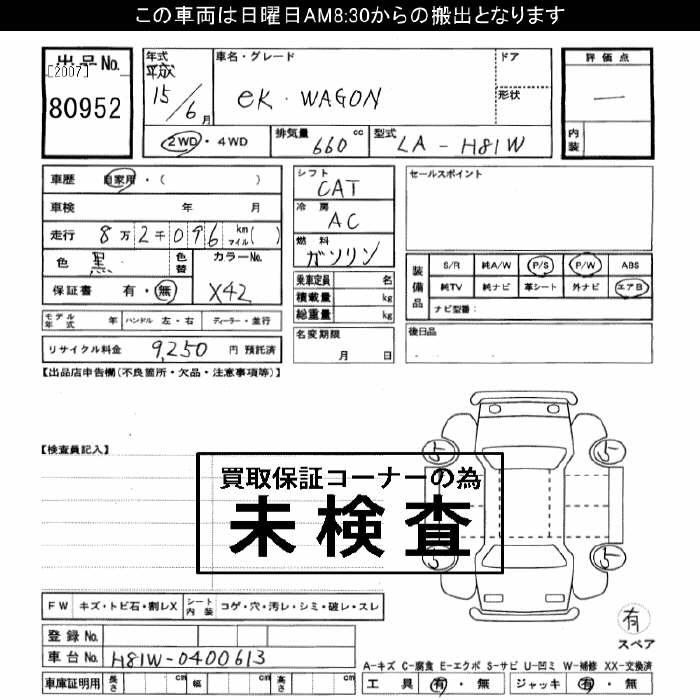 この車両は日曜日AM8:30からの搬出となります
出品No.
[2007]
80952
年式
平成
15/6月
車名・グレード
eK・WAGON
ドア
形状
評価点
―
内装
2WD・4WD
排気量 660 cc
型式 LA-H81W
車歴 自家用・( )
車検 年 月
走行 8万2千096 km マイル( )
色 黒 色替
カラーNo.
X42
保証書 有・無
モデル年式 年 ハンドル 左・右 ディーラー・並行
リサイクル料金 9,250 円 預託済
シフト
CAT
冷房
AC
燃料
ガソリン
乗車定員 名
積載量 kg
総重量 kg
名変期限
月 日
セールスポイント
装備品
S/R 純A/W P/S P/W ABS
純TV 純ナビ 革シート 外ナビ エアB
ナビ型番:
後日品
【出品店申告欄(不良箇所・欠品・注意事項等)】
【検査員記入】
買取保証コーナーの為
未検査
5
5
5
5
有
スペア
FW キズ・トビ石・割レX シート内装 コゲ・穴・汚レ・シミ・破レ・スレ
登録No.
車台No. H81W-0400613
車庫証明用 長さ cm 幅 cm 高さ cm
A-キズ C-腐食 E-エクボ S-サビ U-凹ミ W-補修 XX-交換済
工具 有・無 ジャッキ 有・無